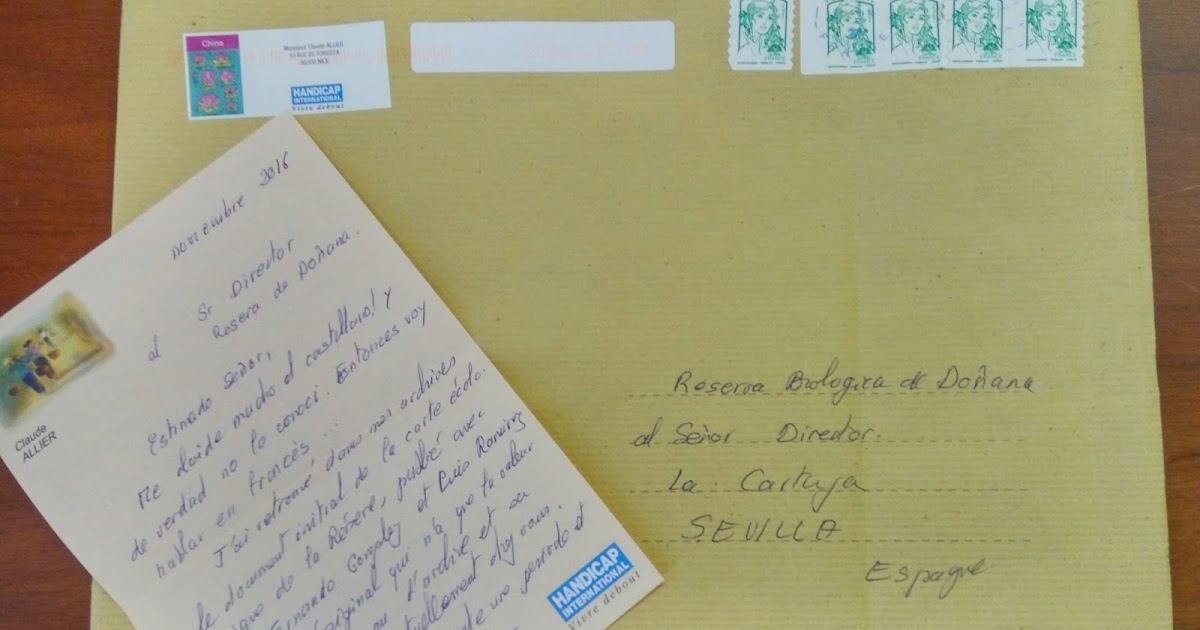 China
Monsieur Claude ALLIER
06300 NICE
HANDICAP
INTERNATIONAL
Vivre debout
FRANCE
FRANCE
FRANCE
FRANCE
FRANCE
novembre 2016
al Sr Director
Reserva de Doñana.
Estimado Señor,
Me olvide mucho el castellano! y
de verdad no lo conoci. Entonces voy
hablar en francès ...
J'ai retrouvé dans mes archives
le document initial de la carte écolo.
de la Réserve, publié avec
Fernando Gonzalez et Luis Ramirez
original qui n'a que la valeur
d'archive et sa
chez vous.
periode et
Claude
ALLIER
HANDICAP
INTERNATIONAL
Vivre debout
Reserva Biologica de Doñana
al Señor Director.
La Cartuja
SEVILLA
Espagne